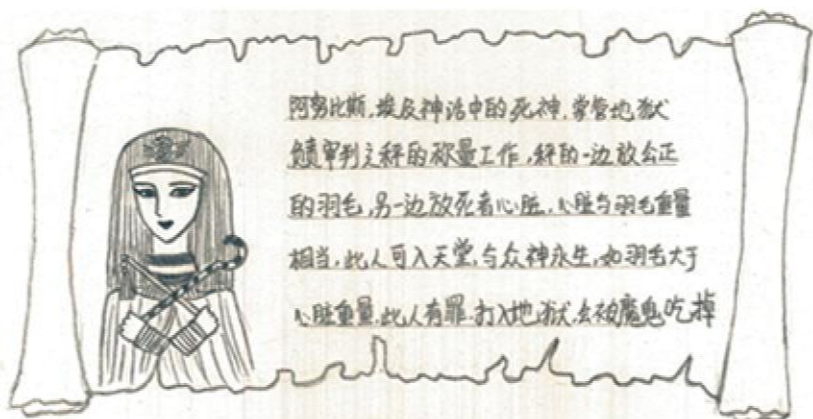 阿努比斯,埃及神话中的死神,掌管地狱
负责审判之秤的砍量工作,秤的一边放公正
的羽毛,另一边放死者心脏,心脏与羽毛重量
相当,此人可入天堂,与众神永生,如羽毛大于
心脏重量,此人有罪.打入地狱,去被魔鬼吃掉